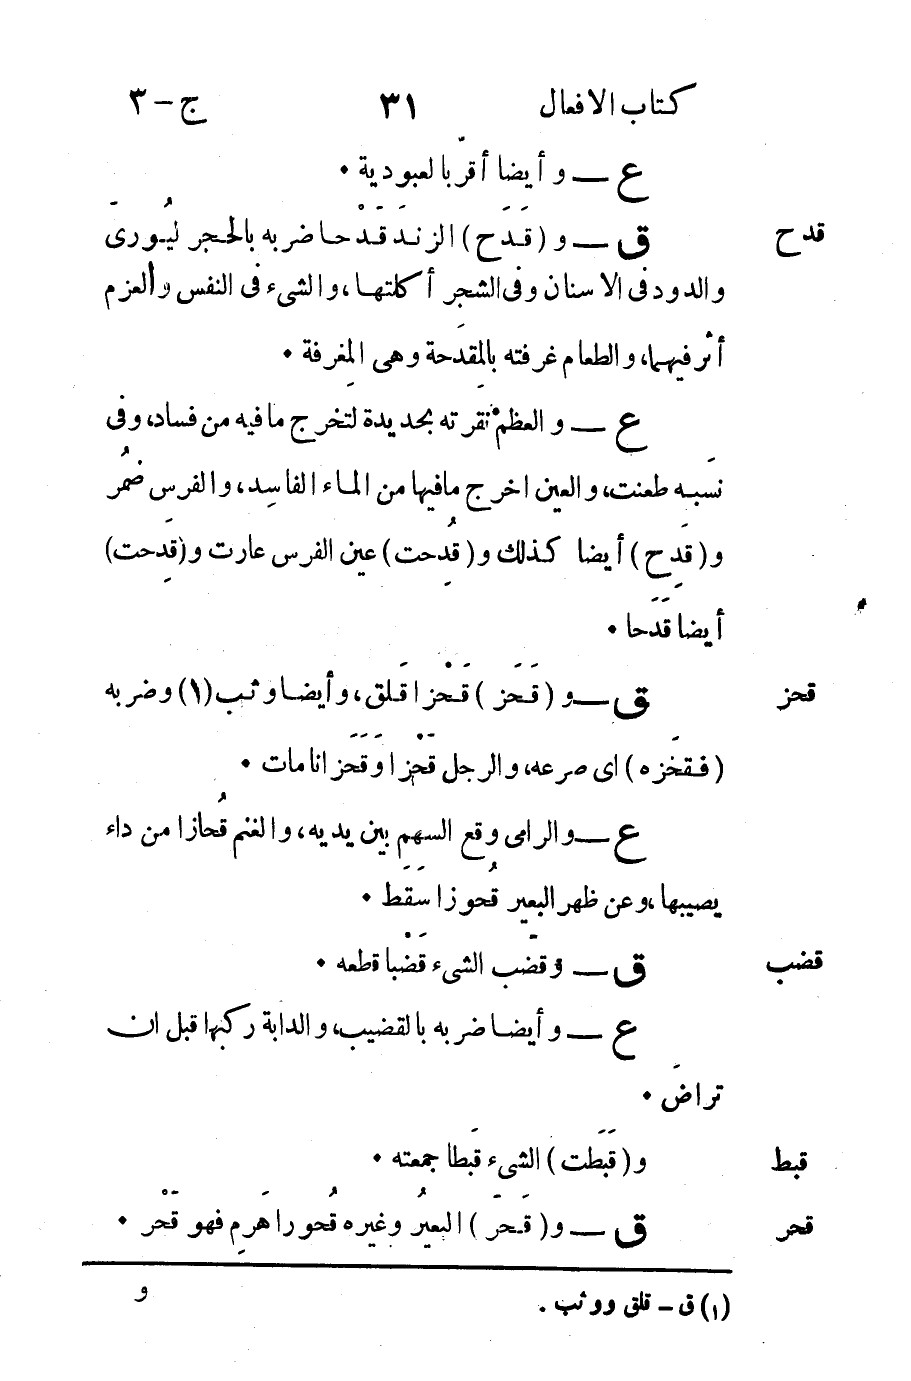 كتاب الافعال ٣١ ج-٣
ع — و أيضا أقرّ بالعبودية •
قدح ق — و (قَدَح) الزندَ قَدْحا ضربه بالحجر ليُورىَ
والدود فى الاسنان وفى الشجر أكلتها، والشىء فى النفس والعزم
أثر فيهما، والطعام غرفته بالمِقدَحة وهى المِغرفة •
ع — و العظم نقرته بحديدة لتخرج ما فيه من فساد، وفى
نسَبه طعنت، والعين اخرج مافيها من الماء الفاسِد، والفرس ضمُر
و (قدَِح) أيضا كذلك و (قُدِحت) عين الفرس عارت و (قَدِحت)
أيضا قَدَحا •
قحز ق — و (قَحَز) قَحْزا قلَق، وأيضا وثب (١) وضربه
(فقحَزه) اى صرعه، والرجل قَحْزا وقَحَزانا مات •
ع — والرامى وقع السهم بين يديه، والغنم قُحازا من داء
يصيبها، وعن ظهر البعير قُحوزا سَقَط •
قضب ق — وقضّب الشىء قَضْبا قطعه •
ع — و أيضا ضربه بالقضيب، والدابة ركبها قبل ان
تراضَ •
قبط و (قَبَطت) الشىء قَبطا جمعته •
قحر ق — و (قَحَرّ) البعيرُ وغيره قُحورا هَرِم فهو قَحْر •
(١) ق - قلق ووثب .
و